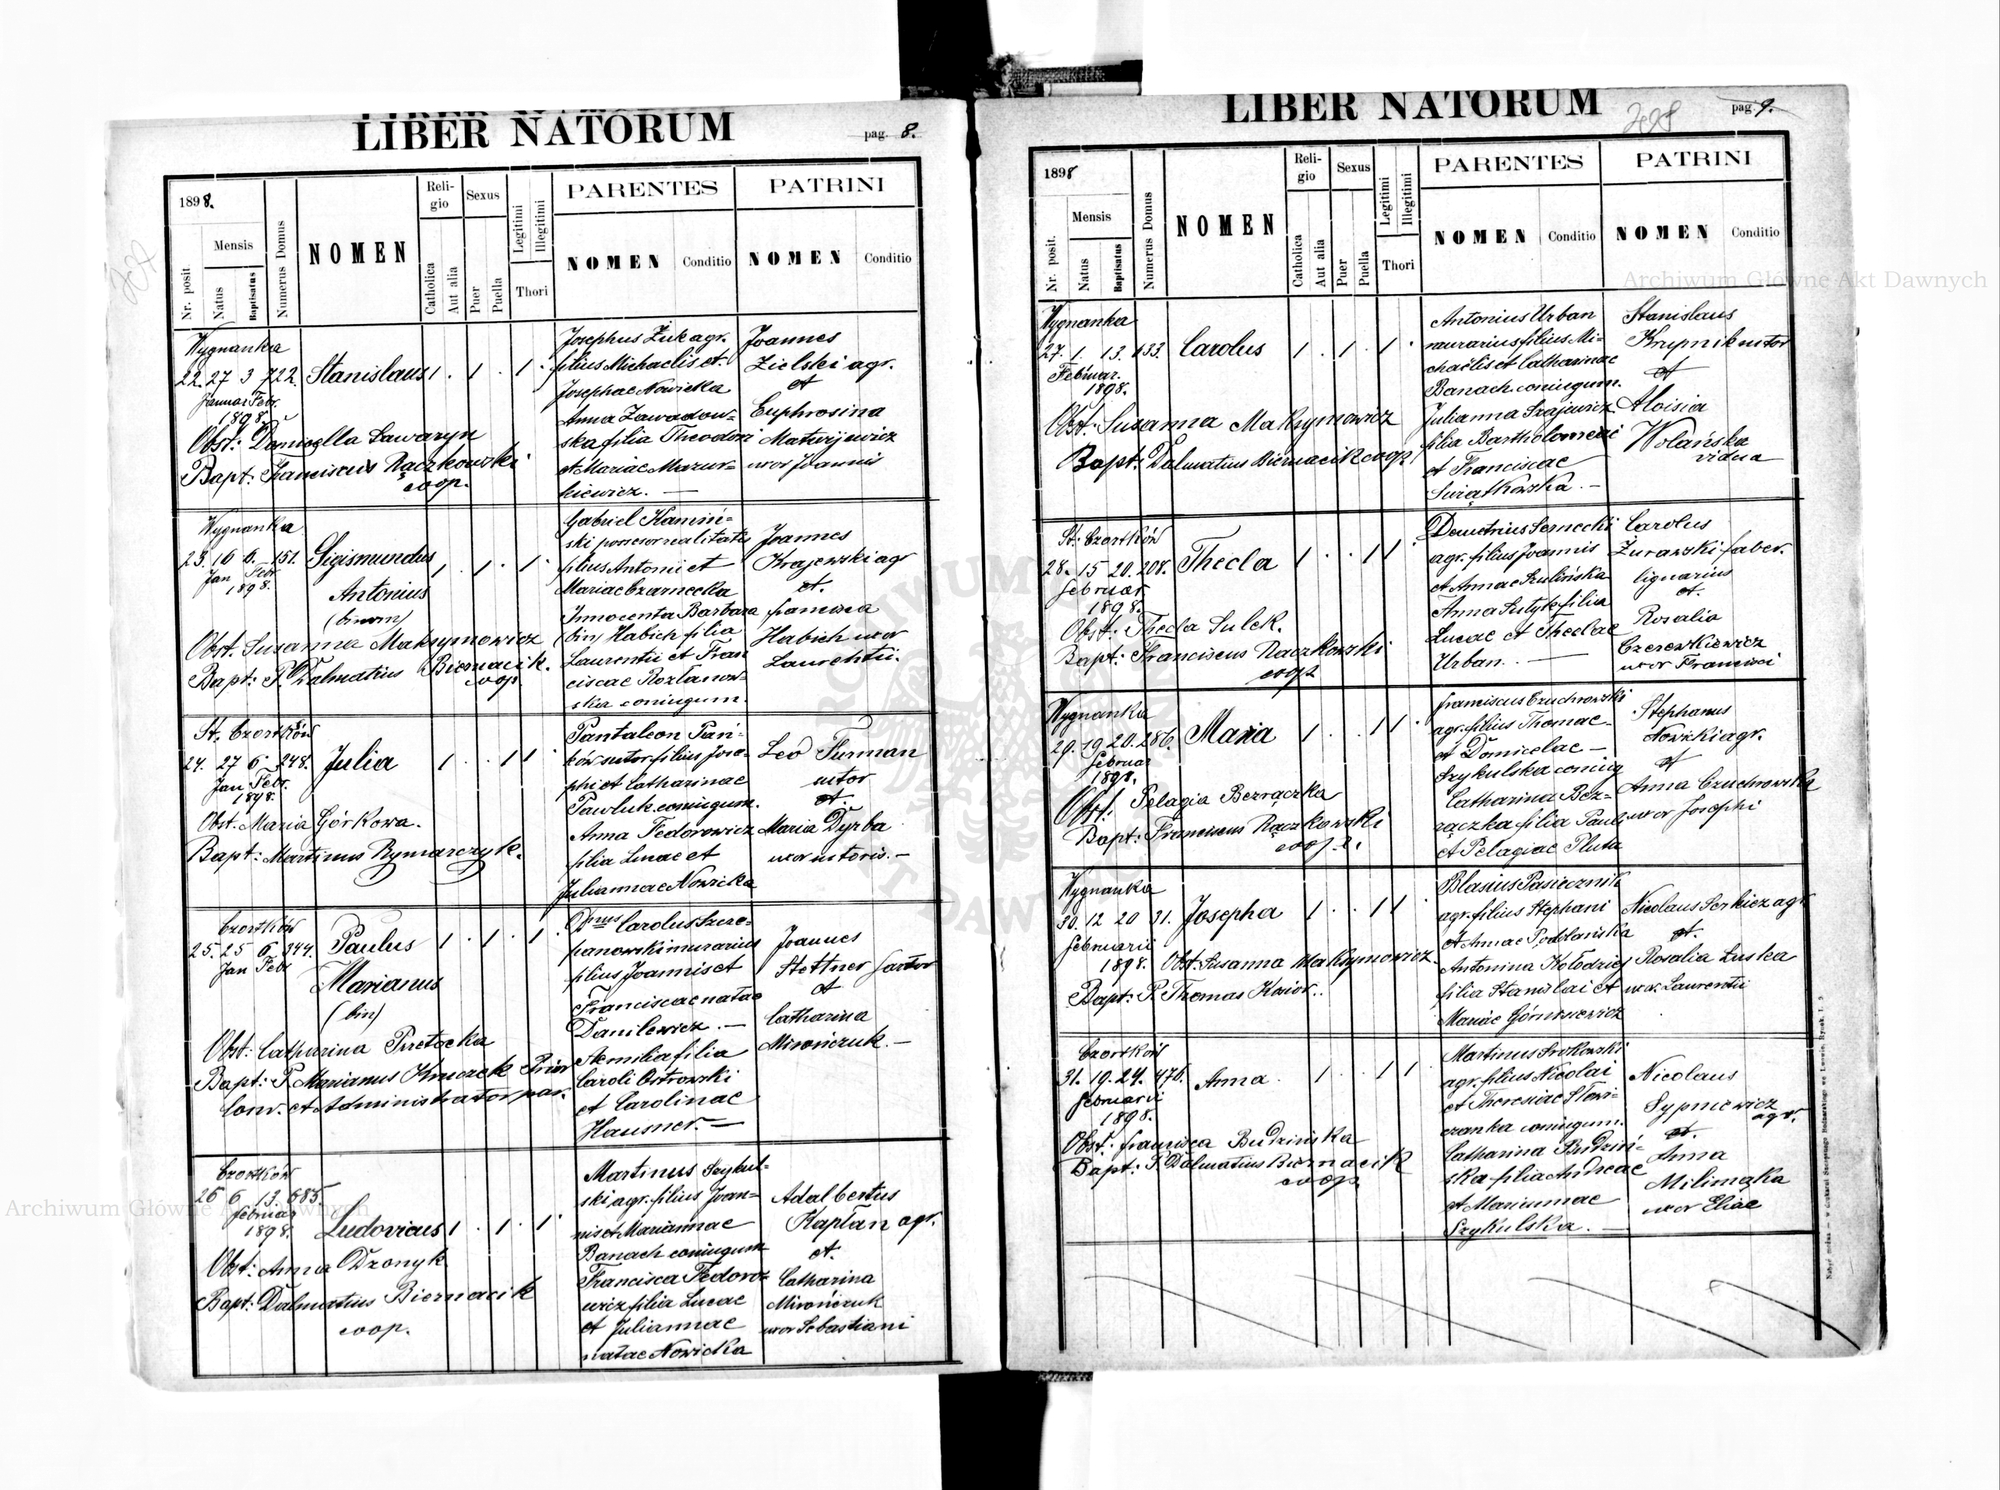 LIBER NATORUM
pag. 8.
1898.
Nr. posit.
Mensis
Natus
Baptisatus
Numerus Domus
NOMEN
Religio
Catholica
Aut alia
Sexus
Puer
Puella
Legitimi
Illegitimi
Thori
PARENTES
NOMEN
Conditio
PATRINI
NOMEN
Conditio
Wygnanka
22. 27 3 722. Stanislaus 1 . 1 . 1 .
Januar Febr.
1898.
Obst: Domicella Sawaryn
Bapt: Franciscus Rączkowski
coop.
Josephus Żuk agr.
filius Michaelis et
Josephae Nowicka
Anna Zawadow-
ska filia Theodori
et Mariae Mazur-
kiewicz. —
Joannes
Zielski agr.
et
Euphrosina
Matwijewicz
uxor Joannis
Wygnanka
23. 16 6. 151. Sigismundus 1 . 1 . 1 .
Jan Febr
1898.
Antonius
(binom)
Obst. Susanna Maksymowicz
Bapt: P. Dalmatius Biernacik.
coop
Gabriel Kamiń-
ski possesor realitatis
filius Antonii et
Mariae Czarnecka
Innocenta Barbara
(bin) Habich filia
Laurentii et Fran
ciscae Kozłanow-
ska coniugum.
Joannes
Krajewski agr
et.
Francisca
Habich uxor
Laurentii.
St. Czortków
24. 27 6. 248. Julia 1 . . 1 1 .
Jan Febr.
1898.
Obst. Maria Górkowa.
Bapt: Martinus Rymarczyk.
Pantaleon Pań-
ków sutor filius Jose-
phi et Catharinae
Pawluk coniugum.
Anna Fedorowicz
filia Lucae et
Juliannae Nowicka
Leo Furman
sutor
et.
Maria Dyrba
uxor sutoris. —
Czortków
25. 25 6. 344. Paulus 1 . 1 . 1 .
Jan Febr
Marianus
(bin)
Obst: Catharina Piretecka
Bapt: P. Marianus Kmorek Prior
Conv. et Administrator par.
Dnus Carolus Szcze-
panowski murarius
filius Joannis et
Franciscae natae
Danilewicz. —
Aemilia filia
Caroli Ostrowski
et Carolinae
Hausner. —
Joannes
Stettner sartor
et
Catharina
Mirończuk. —
Czortków
26 6. 13. 685.
Februar
1898. Ludovicus 1 . 1 . 1
Obst: Anna Dzonyk
Bapt: Dalmatius Biernacik
coop.
Martinus Szykul-
ski agr. filius Joan-
nis et Mariannae
Banach coniugum
Francisca Fedoro-
wicz filia Lucae
et Juliannae
natae Nowicka
Adalbertus
Kapłan agr.
et.
Catharina
Mirończuk
uxor Sebastiani
LIBER NATORUM
pag. 9.
1898
Nr. posit.
Mensis
Natus
Baptisatus
Numerus Domus
NOMEN
Religio
Catholica
Aut alia
Sexus
Puer
Puella
Legitimi
Illegitimi
Thori
PARENTES
NOMEN
Conditio
PATRINI
NOMEN
Conditio
Wygnanka
27. 1. 13. 133. Carolus 1 . 1 . 1 .
Februar.
1898.
Obst: Susanna Maksymowicz
Bapt: Dalmatius Biernacik coop.
Antonius Urban
murarius filius Mi-
chaelis et Catharinae
Banach coniugum.
Julianna Szajewicz
filia Bartholomaei
et Franciscae
Świątkowska. —
Stanislaus
Krupnik sutor
et
Aloisia
Wolańska
vidua
St. Czortków
28. 15 20. 208. Thecla 1 . . 1 1
Februar
1898.
Obst: Thecla Sulek.
Bapt: Franciscus Rączkowski
coop
Demetrius Sernecki
agr. filius Joannis
et Annae Szulińska
Anna Sutyk filia
Lucae et Theclae
Urban. . —
Carolus
Żurawski faber.
lignarius
et.
Rosalia
Czerewkiewicz
uxor Francisci
Wygnanka
29. 19 20. 286. Maria 1 . . 1 1 .
Februar
1898.
Obst: Pelagia Bezrączka
Bapt: Franciscus Rączkowski
coop. e.
Franciscus Czuchrowski
agr. filius Thomae
et Domicelae —
Szykulska coniug
Catharina Bez-
rączka filia Pauli
et Pelagiae Pluta
Stephanus
Nowicki agr.
et
Anna Czuchrowska
uxor Josephi
Wygnanka
30. 12 20 31. Josepha 1 . . 1 1
Februarii
1898. Obst: Susanna Maksymowicz.
Bapt: P. Thomas Kosior..
Blasius Pasiecznik
agr. filius Stephani
et Annae Podolańska
Antonina Kołodziej
filia Stanislai et
Mariae Górniewicz
Nicolaus Serkicz agr
et.
Rosalia Łuska
uxor. Laurentii
Czortków
31. 19. 24. 476. Anna. 1 . . 1 1
Februarii
1898.
Obst: Francisca Budzińska
Bapt: P. Dalmatius Biernacik
coop
Martinus Srokowski
agr. filius Nicolai
et Theresiae Słowi-
czanka coniugum.
Catharina Budziń-
ska filia Andreae
et Mariannae
Szykulska. —
Nicolaus
Sypniewicz
agr.
et.
Anna
Milimaka
uxor Eliae
Archiwum Główne Akt Dawnych
Archiwum Główne Akt Dawnych
ARCHIWUM GŁÓWNE AKT DAWNYCH